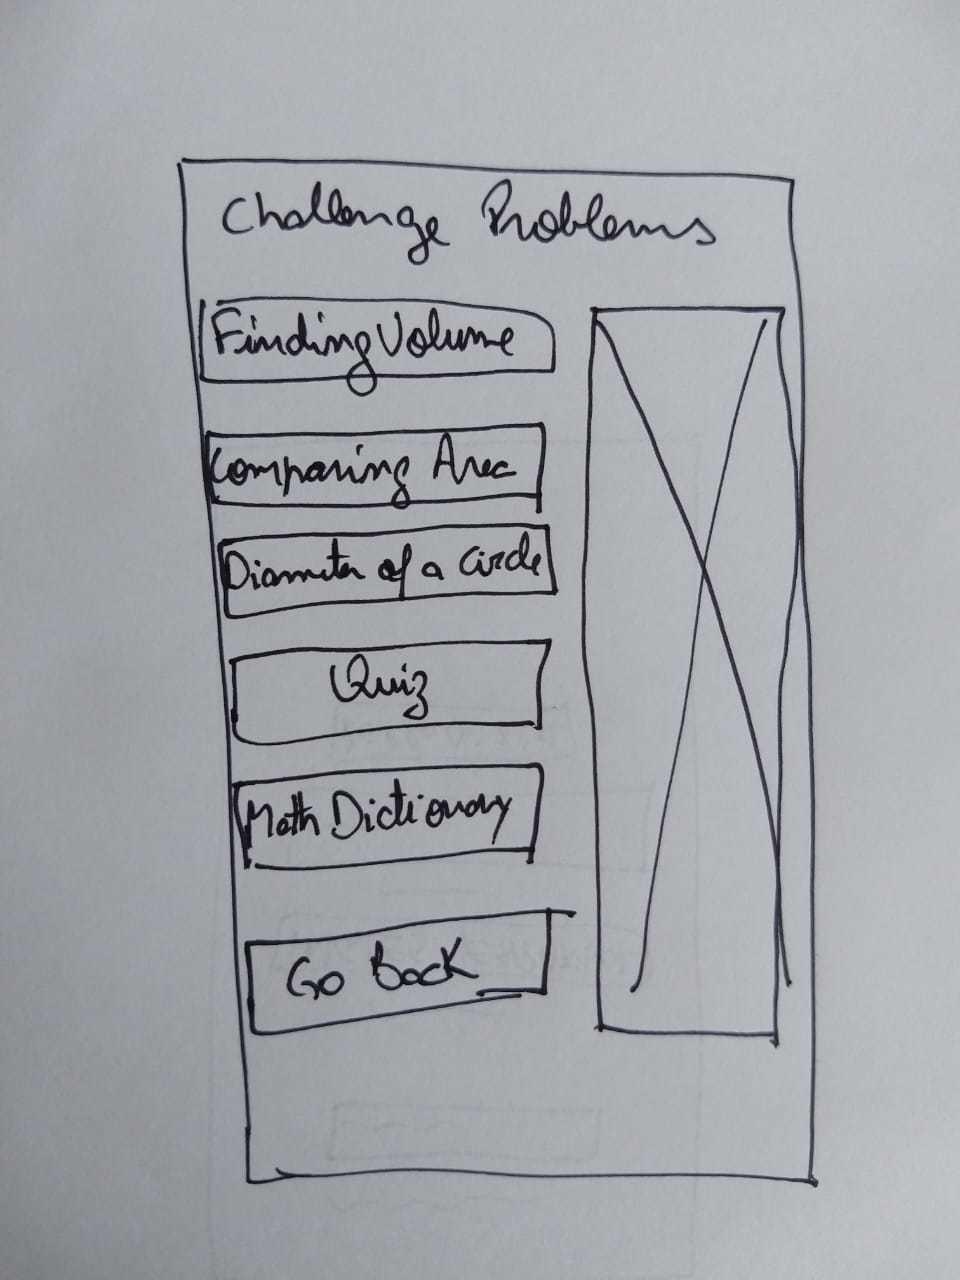 Challenge Problems
Finding Volume
Comparing Area
Diameter of a Circle
Quiz
Math Dictionary
Go Back